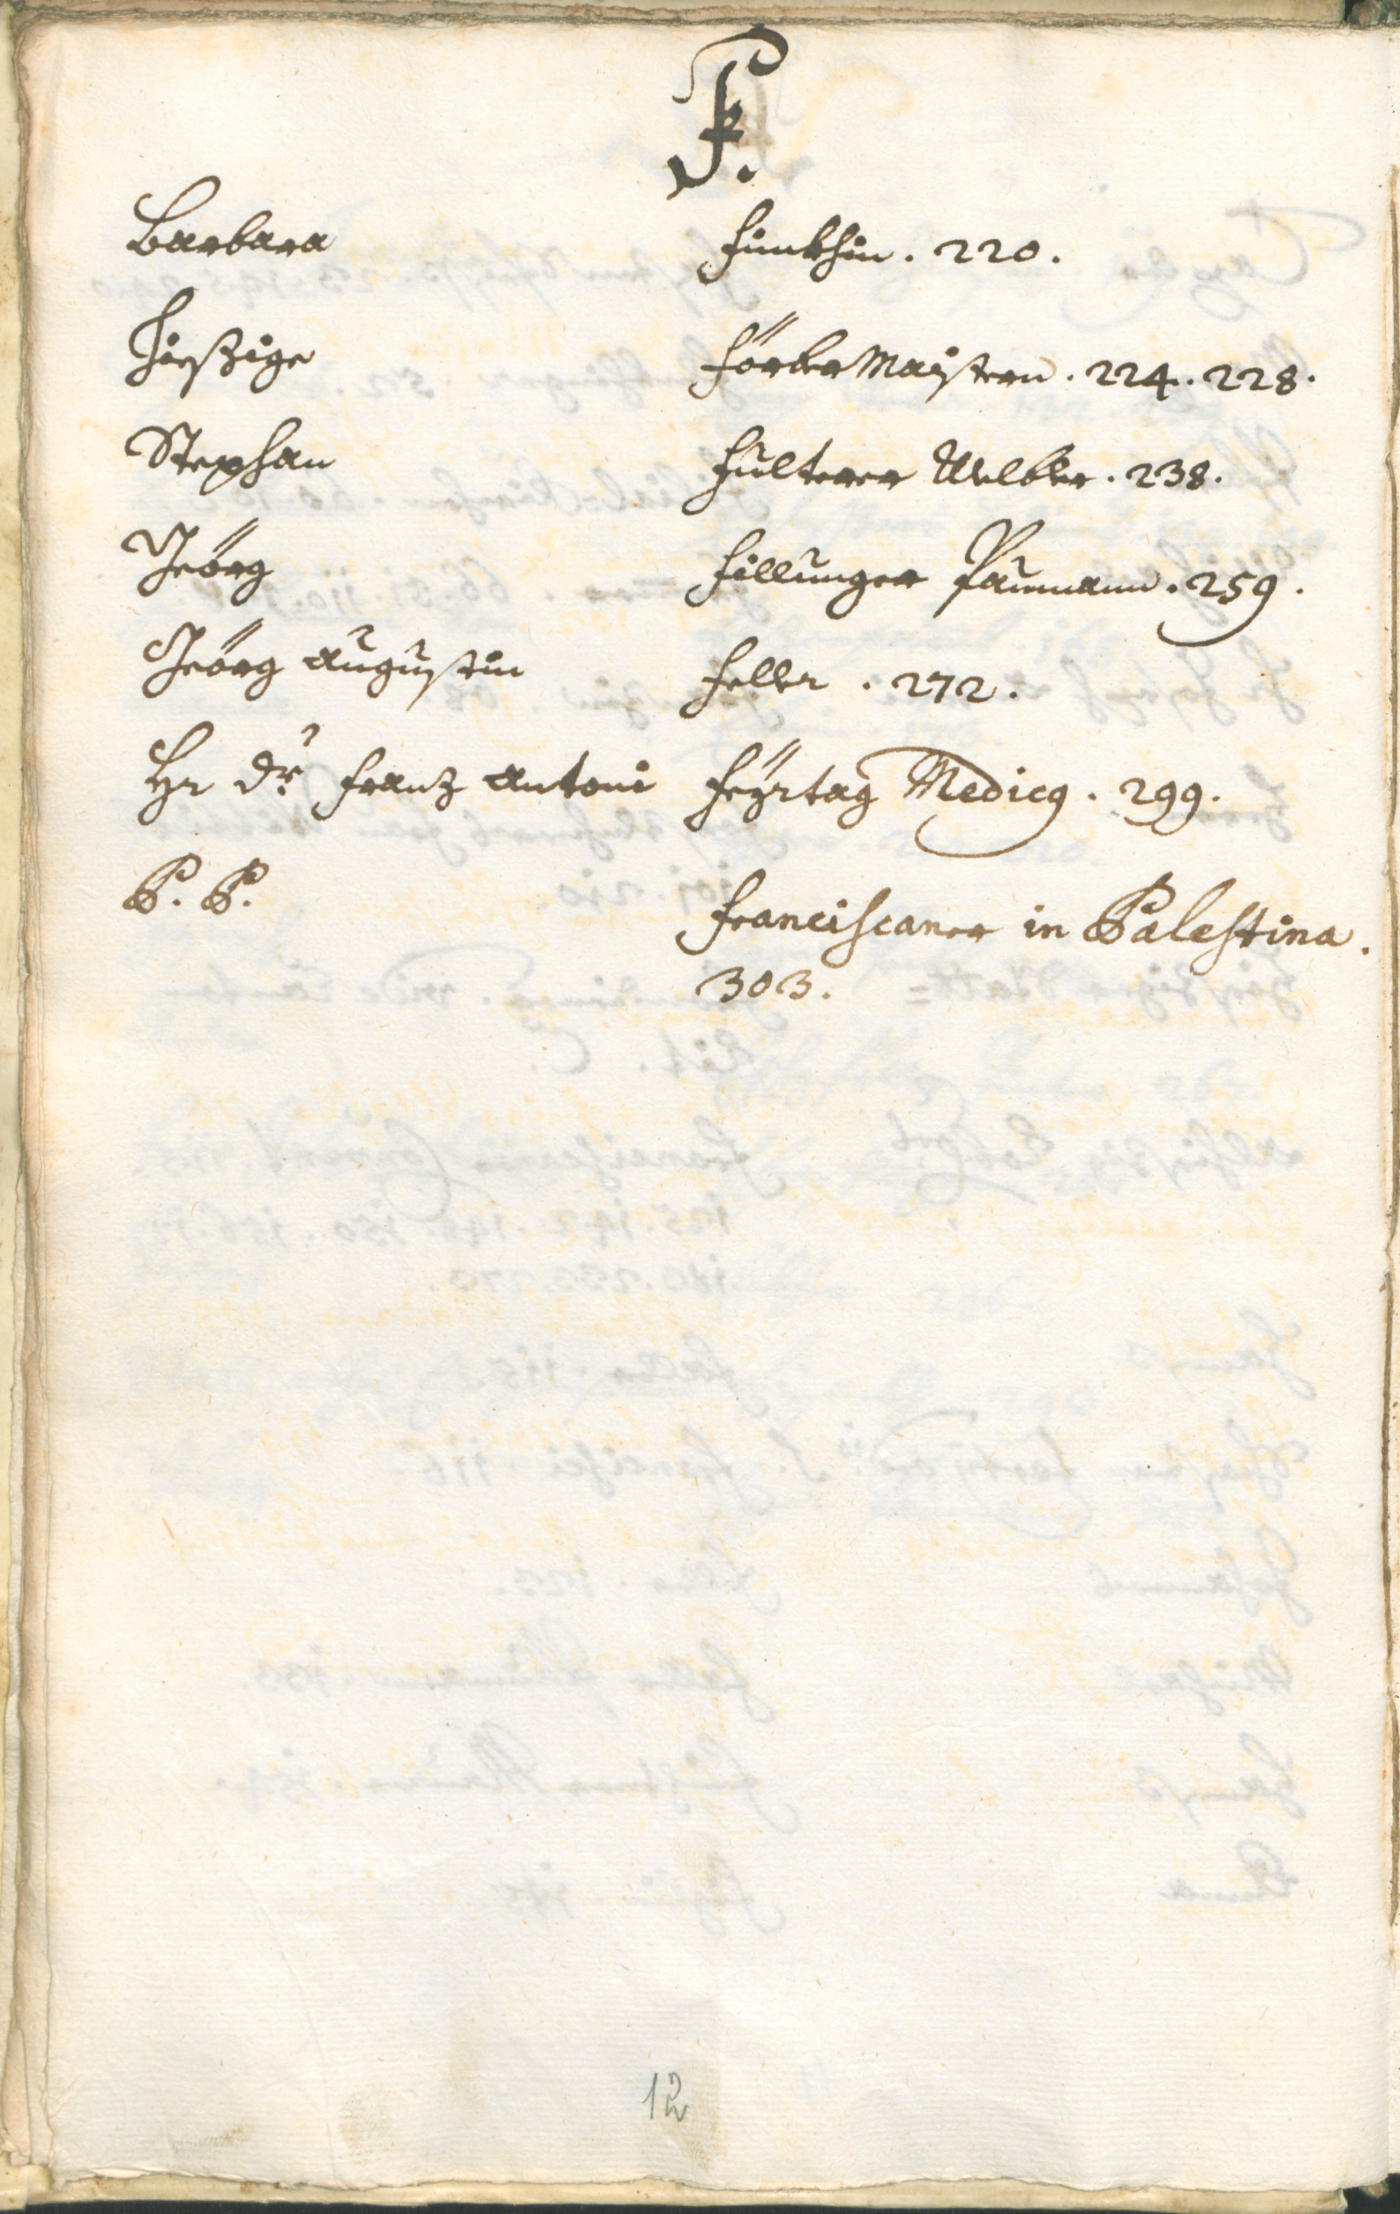 F.
Barbara Finkhin . 220 .
Hieszige Förber Maistern . 224 . 228 .
Stephan Fulterer Melber . 238 .
Jeörg Fillunger Paumann . 259 .
Jeörg Augustin Feller . 272 .
Hr Dr Franz Antoni Feÿrtag Medicq . 299 .
P. P. Franciscaner in Palestina .
303 .
12